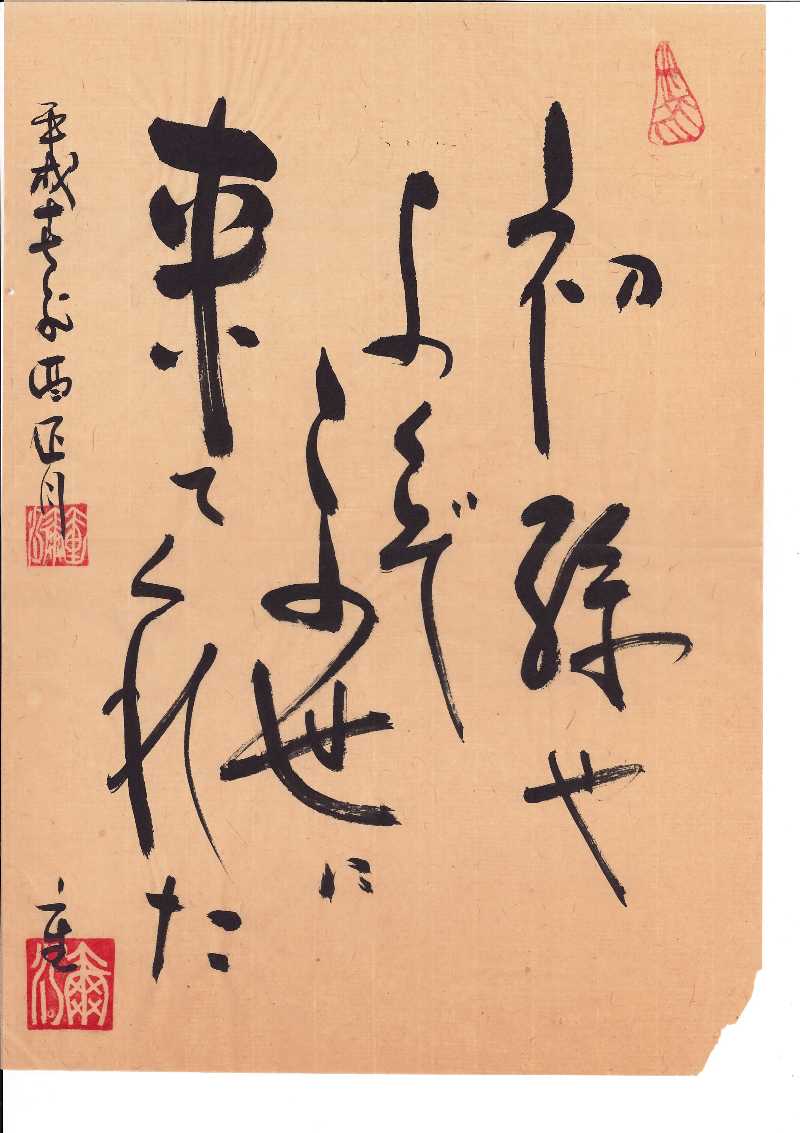 初孫や
よくぞ
この世に
来てくれた
平成十七年酉正月